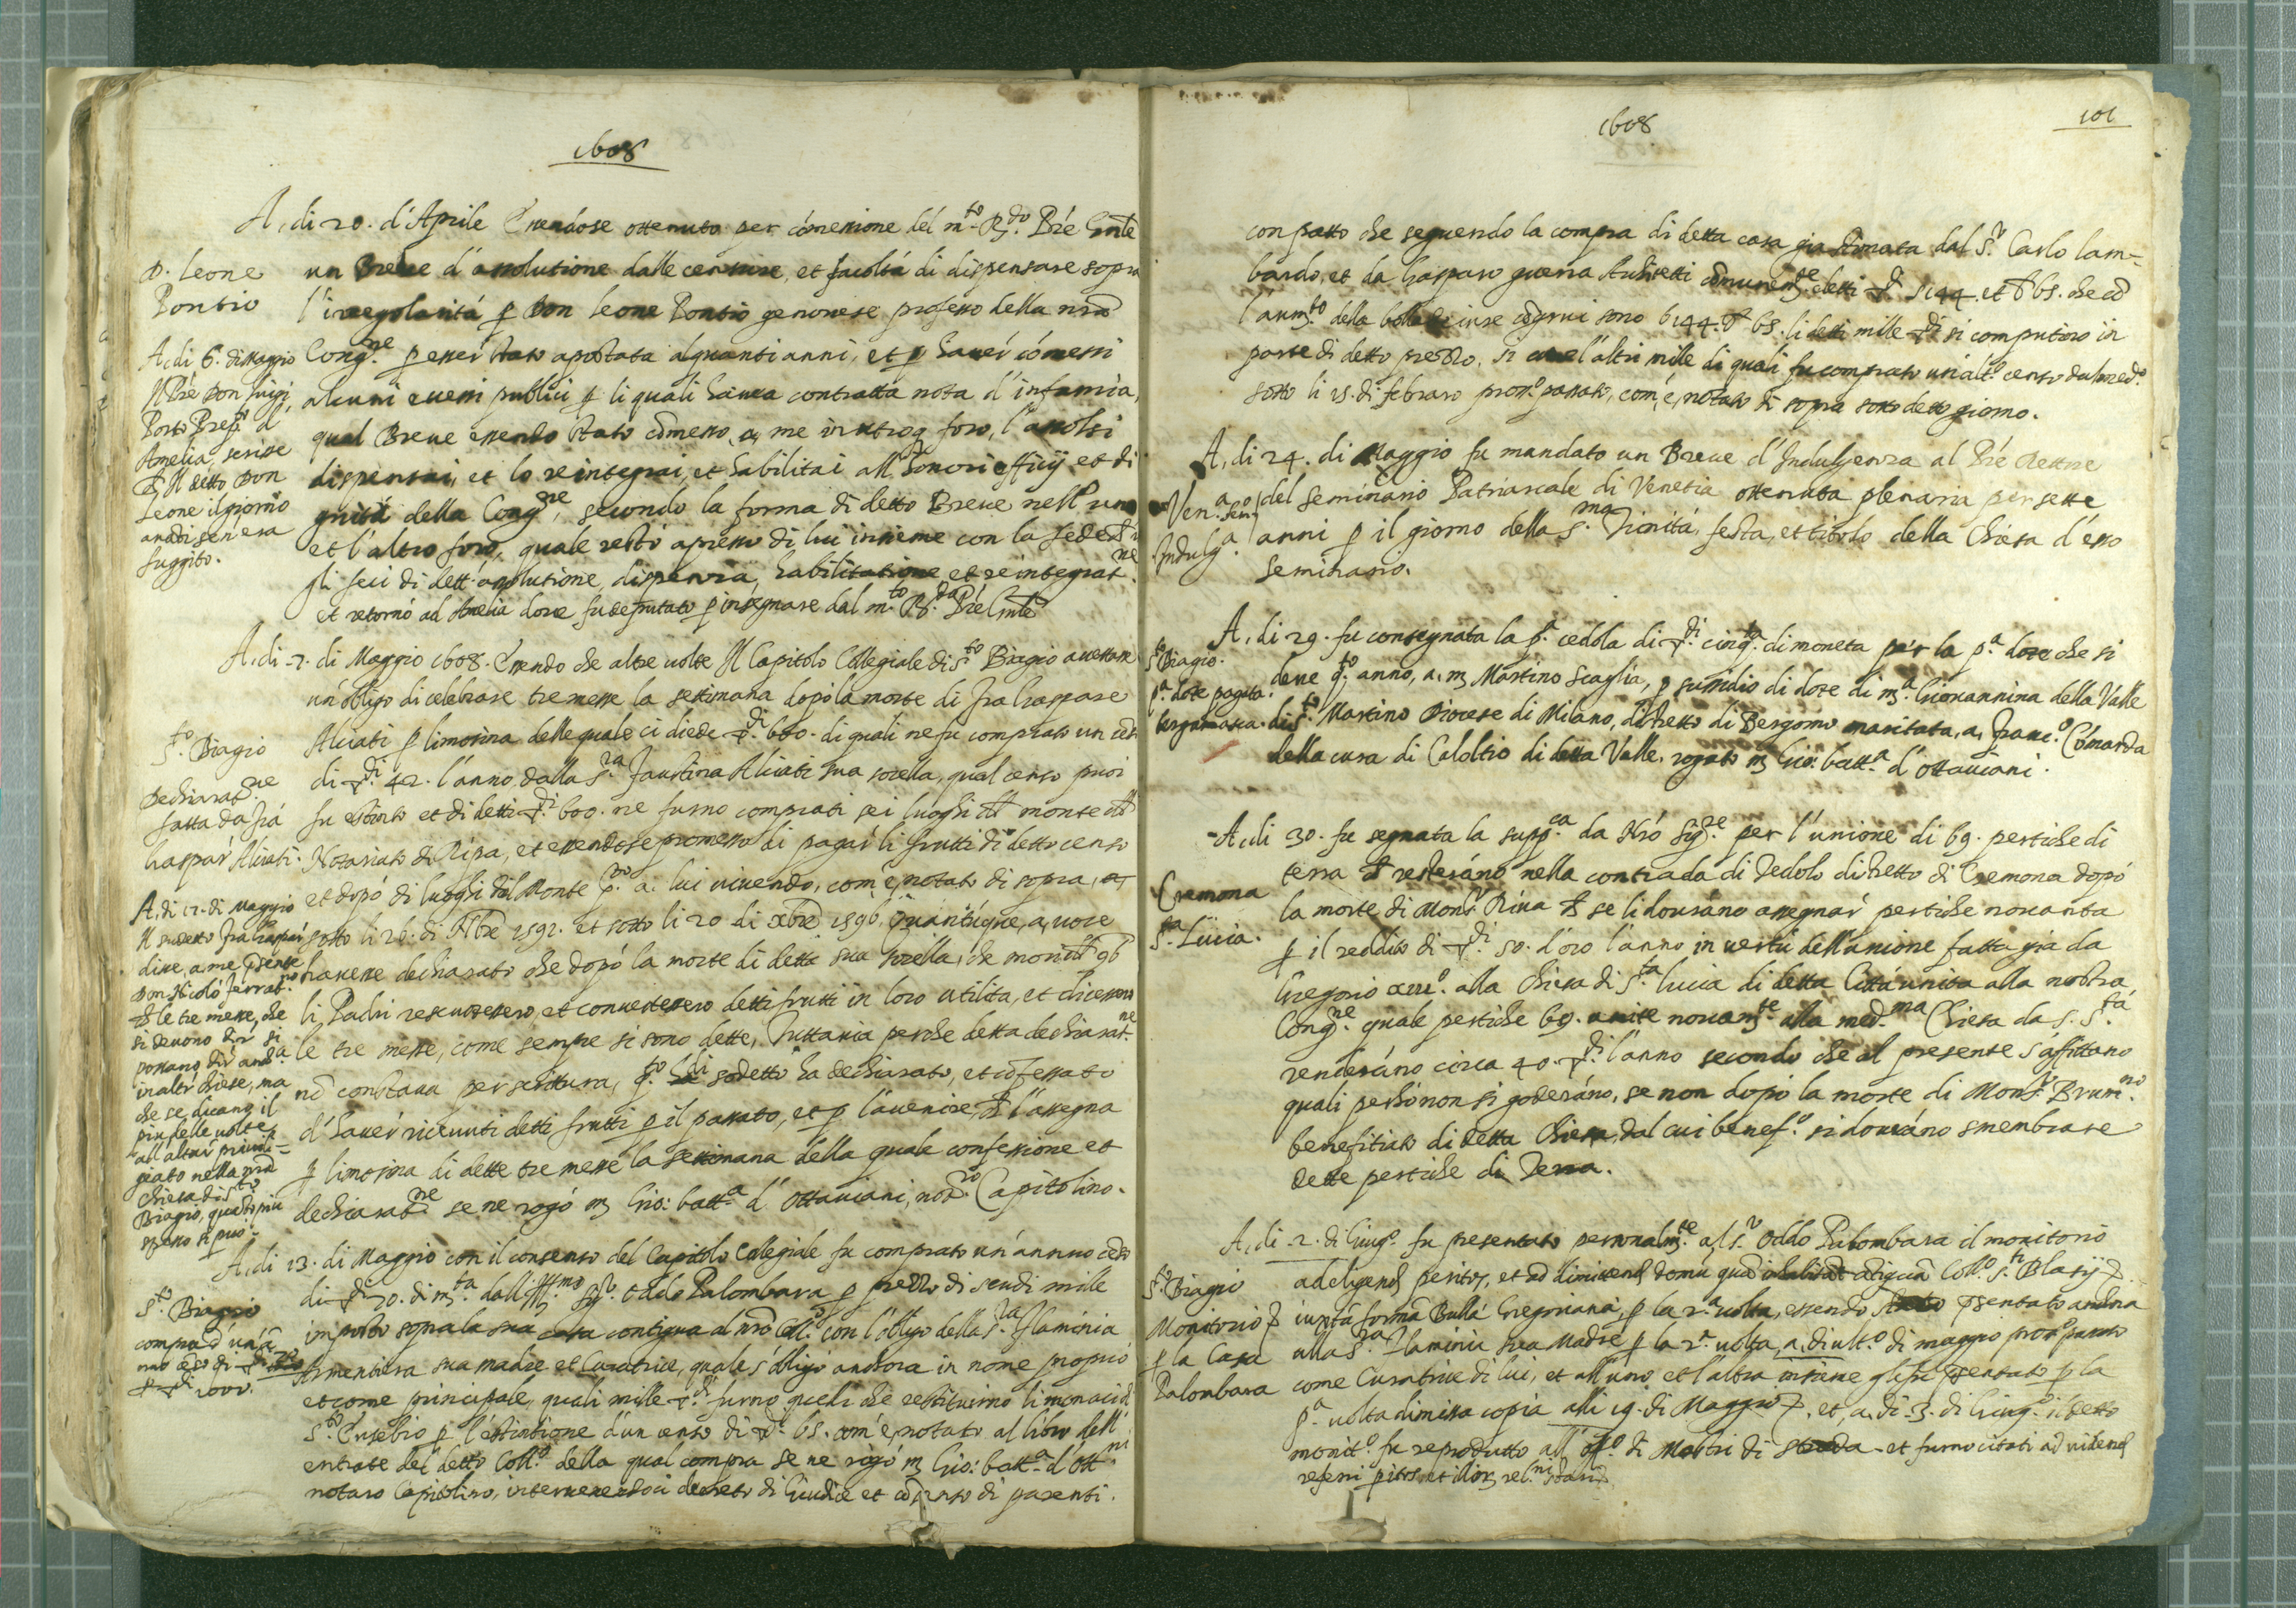 1608
A, di 20. d'Aprile Essendose ottenuto per cómessione del m.to R.do Prè Gnle
D. Leone
Pontio
un Breue d'assolutione dalle censure, et facoltá di dispensare sopra
l'irregolaritá p Don Leone Pontio genouese professo della nrã
Cong.ne p esser stato apostata alquanti anni, et p hauer cómessi
alcuni eccessi publici p li quali hauea contratta nota d'infamia,
qual Breue essendo stato cómesso, a, me in utroq foro, l'assolsi
dispensai, et lo reintegrai, et habilitai all'honori officij et di
gnitá della Cong.ne, secondo la forma di detto Breue nell'uno
et l'altro foro, quale restó apresso di lui insieme con la fede ch
gli feci di dett'assolutione, dispensa, habilitatione et reintegrat.ne
et retornó ad Amelia doue fu deputato p insegnare dal m.to R.do Prè Gnle
A, di 6. di Maggio
Il Prè Don Luigi
Porto Prep.to d'
Amelia, scrisse
ch Il detto Don
Leone il giorno
auanti sen'era
fuggito.
A, di -2. di Maggio 1608. Essendo che altre uolte Il Capitolo Collegiale di S.to Biagio auesse
un'obligo di celebrare tre messe la settimana dopó la morte di fra Gaspare
Alciati p limosina delle quale ci diede di 600. di quali ne fu comprato un censo
di 42. l'anno dalla S.ra Faustina Alciati sua sorella, qual censo puoi
fu estinto et di detti 600. ne furno comprati sei luoghi del monte del
Notariato di Ripa, et essendose promesso di pagar li frutti di detto censo
et dopó di luoghi del Monte p.to a, lui uiuendo, com'è, notato di sopra, a,
sotto li 26. di Nbre 1592. et sotto li 20 di xbre 1596. Quantúque, a, uoce
hauesse dechiarato che dopó la morte di detta sua sorella, che morì del 96
li Padri rescuotessero, et conuertessero detti frutti in loro utilita, et dicessero
le tre messe, come sempre si sono dette, Tuttauia perche detta dechiarat.ne
nõ constaua per scrittura, sodetto ha dechiarato, et cõfessato
d'hauer riceuuti detti frutti p il passato, et p l'auenire, ch l'assegna
p limosina di dette tre messe la settimana della quale confessione et
dechiarat.ne se ne rogó m Gio: batt.a d'Ottauiani, not.ro Capitolino.
S.to Biagio
Dechiarat.ne
fatta da fra
Gaspar Alciati.
A, di 12. di Maggio
Il sudetto fra Gaspar
disse, a me psente
Don Nicoló Ferrat.no
ch le tre messe, che
si deuono dir si
possano dir anc.a
in altri chiese, ma
che se dicano il
piu delle uolte
all'altar priuile-
giato nella nrã
Chiesa di S.to
Biagio, quanto piu
spesso si può.
A, di 13. di Maggio con il consenso del Capitolo Collegiale fu comprato un'annuo céso
di 70. di m.ta dall'Ill.mo Sig.r Oddo Palombara p prezzo di scudi mille
imposto sopra la sua casa contigua al nrõ Coll.o con l'obligo della S.ra Flaminia
Armentiera sua madre et Curatrice, quale s'obligó anchora in nome proprio
et come principale, quali mille furno quelli che restituirno li monaci di
S.to Eusebio p l'estintione d'un censo di 65. com'è, notato al libro dell'
entrate del detto Coll.o della qual compra se ne rogó m Gio: batt.a d'Ott.ni
notaro Capitolino, interuenendoci decreto di Giudice et cõsenso di parenti.
S.to Biagio
compra d'un'an
nuo céso di 70
p 1000.
1608
101
con patto che seguendo la compra di detta casa gia stimata dal S.r Carlo Lam-
bardo, et da Gasparo guerra Architetti cómunem.te eletti 5144. et b 65. che có
l'aum.to della bolla sono 6144. b 65. li detti mille si computino in
parte di detto prezzo. si l'altri mille di quali fu comprato un'alt.o censo dal med.o
sotto li 15. di febraro pros.o passato, com'è, notato di sopra sotto detto giorno.
A, di 24. di Maggio fu mandato un Breue d'Indulgenza al Prè Rettore
del Seminario Patriarcale di Venetia ottenuta plenaria per sette
anni p il giorno della S.ma Trinitá, festa, et titolo della Chiesa d'esso
Seminario.
Ven.a Sem.o
Indulg.a
A, di 29. fu consegnata la p.a cedola di cinq.ta di moneta per la p.a dote che si
deue q.to anno, a, m Martino Scaglia, p sussidio di dote di m.a Giouannina della Valle
di S.to Martino Diocese di Milano, distretto di Bergomo maritata, a, Franc.o Cómanda
della cura di Caloltio di detta Valle. rogato m Gio: batt.a d'Ottauiani.
S.to Biagio.
p.a dote pagata
bergamasca.
A, di 30. fu segnata la supp.ca da Nró Sig.re per l'unione di 69. pertiche di
terra ch resteráno nella contrada di Dedolo distretto di Cremona dopó
la morte di Mons.r Riua ch se li douráno assegnar pertiche nouanta
p il reddito di 50. d'oro l'anno in uertú dell'unione fatta gia da
Gregorio xiii.o alla Chiesa di S.ta Lucia di detta Cittá unita alla nostra
Cong.ne quale pertiche 69. unite nouam.te alla med.ma Chiesa da S. S.tá
renderáno circa 40. l'anno secondo che al presente s'affittano
quali perhó non si goderáno, se non dopó la morte di Mons.r Brum.no
benefitiato di detta Chiesa, dal cui benef.o si douráno smembrare
dette pertiche di Terra.
Cremona
S.ta Lucia.
A, di -2. di Giug.o fu presentato personalm.te al S.r Oddo Palombara il monitorio
ad eligend peritos, et ad dimittend domú quá inhabitat cótiguá Coll.o S.ti Blasij
iuxta formá Bullá Gregoriana, p la 2.a uolta, essendo psentato
alla S.ra Flaminia sua Madre p la 2.a uolta, a, di ult.o di maggio pros.o passato
come Curatrice di lui, et all'uno et l'altra insieme gli fu psentato p la
p.a uolta dimissa copia alli 19. di Maggio, et, a, di -3. di Giug.o il detto
monit.o fu reprodutto all'off.o di Mastri di strada et furno citati ad uidend
referri
S.to Biagio
Monitorio
p la Casa
Palombara